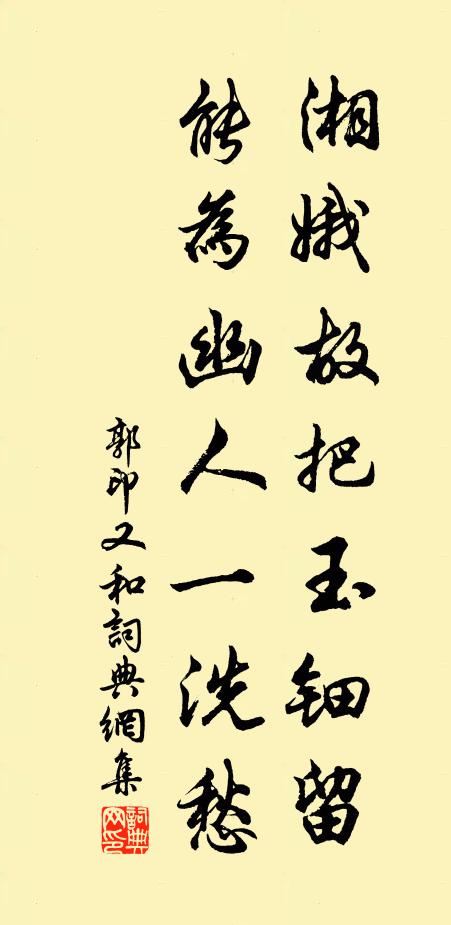 湘娥故把玉钿留
能為幽人一洗愁
郭印又和詞典網集
詞典网印